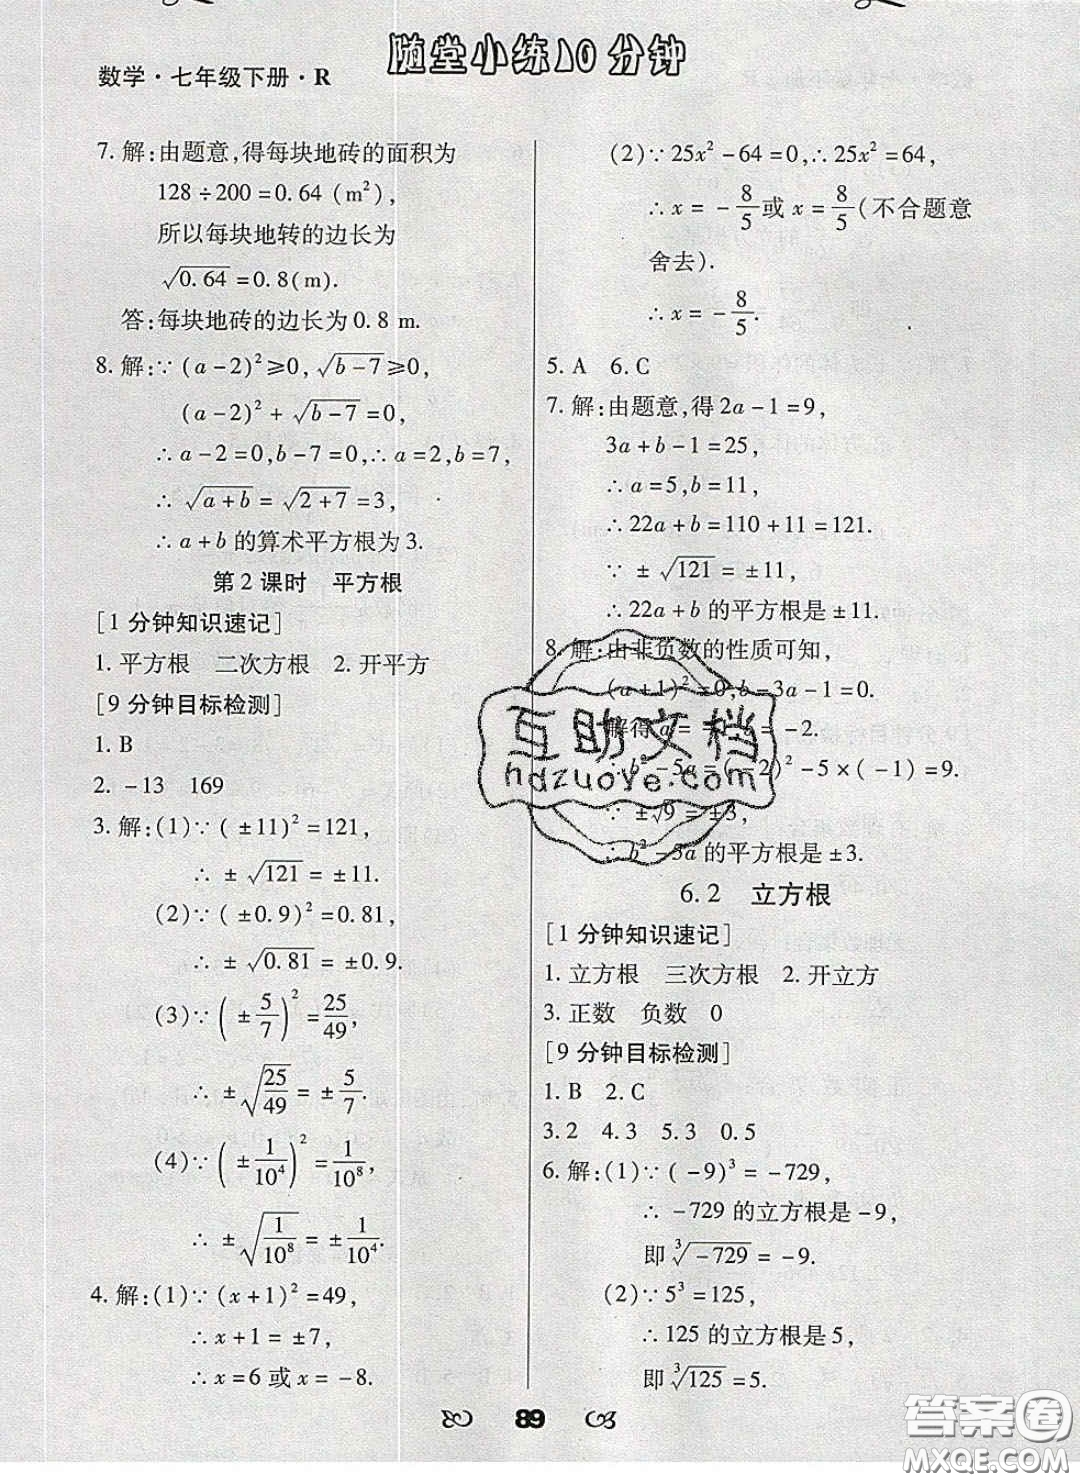 随堂小练10分钟
数学·七年级下册·R
7. 解:由题意,得每块地砖的面积为
128÷200=0.64 (m²),
所以每块地转的边长为
√0.64=0.8(m).
答:每块地砖的边长为0.8 m.
8. 解:∵(a-2)²≥0,√(b-7)≥0,
(a-2)²+√(b-7)=0,
∴a-2=0,b-7=0,∴a=2,b=7,
∴√(a+b)=√(2+7)=3,
∴a+b的算术平方根为3.
第2课时 平方根
[1分钟知识速记]
1. 平方根 二次方根 2. 开平方
[9分钟目标检测]
1. B
2. -13 169
3. 解:(1)∵(±11)²=121,
∴±√121=±11.
(2)∵(±0.9)²=0.81,
∴±√0.81=±0.9.
(3)∵(±5/7)²=25/49,
∴±√(25/49)=±5/7.
(4)∵(±1/10⁴)²=1/10⁸,
∴±√(1/10⁸)=±1/10⁴.
4. 解:(1)∵(x+1)²=49,
∴x+1=±7,
∴x=6或x=-8.
(2)∵25x²-64=0,∴25x²=64,
∴x=-8/5或x=8/5(不合题意
舍去).
∴x=-8/5.
5. A 6. C
7. 解:由题意,得2a-1=9,
3a+b-1=25,
∴a=5,b=11,
∴22a+b=110+11=121.
∵±√121=±11,
∴22a+b的平方根是±11.
8. 解:由非负数的性质可知,
(a+1)²=0,b-3a-1=0.
解得a=-1,b=-2.
∴b²-5a=(-2)²-5×(-1)=9.
∵±√9=±3,
∴b²-5a的平方根是±3.
互助文档
hdzuoye.com
6.2 立方根
[1分钟知识速记]
1. 立方根 三次方根 2. 开立方
3. 正数 负数 0
[9分钟目标检测]
1. B 2. C
3. 2 4. 3 5. 3 0.5
6. 解:(1)∵(-9)³=-729,
∴-729的立方根是-9,
即∛-729=-9.
(2)∵5³=125,
∴125的立方根是5,
即∛125=5.
89
答案圈
MXQE.COM